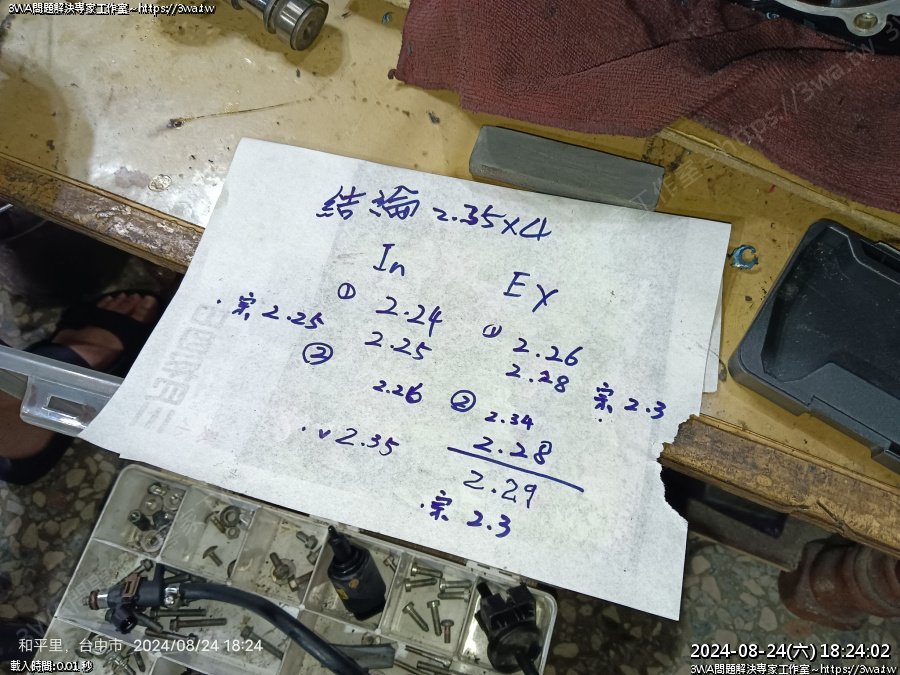 3WA問題解決專家工作室~https://3wa.tw
結論 2.35x4
In
Ex
① 2.24
2.25
宗 2.25
②
2.26
v 2.35
① 2.26
2.28
宗 2.3
② 2.34
2.28
2.29
宗 2.3
和平里，台中市 2024/08/24 18:24
載入時間: 0.01 秒
2024-08-24(六) 18:24:02
3WA問題解決專家工作室~https://3wa.tw